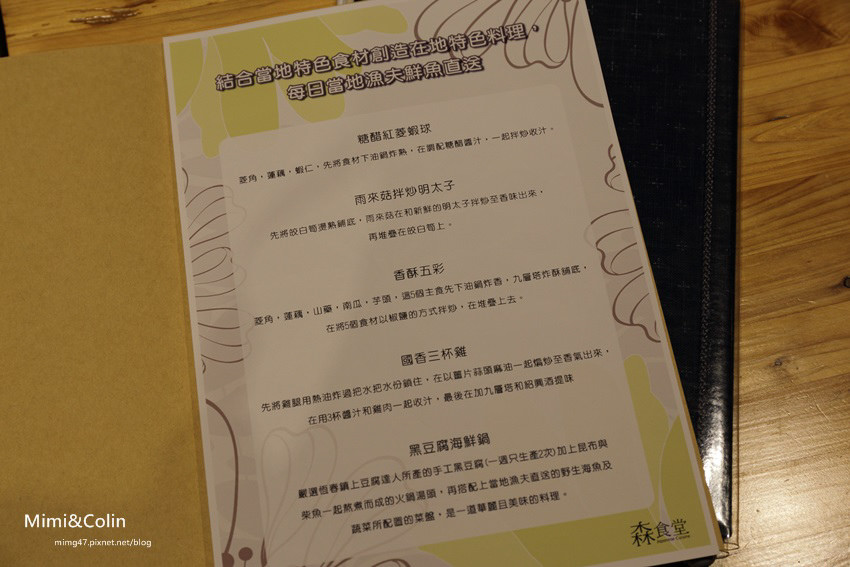 結合當地特色食材創造在地特色料理，
每日當地漁夫鮮魚直送
糖醋紅菱蝦球
菱角，蓮藕，蝦仁，先將食材下油鍋炸熟，在調配糖醋醬汁，一起拌炒收汁。
雨來菇拌炒明太子
先將皎白筍燙熟鋪底，雨來菇在和新鮮的明太子拌炒至香味出來，
再堆疊在皎白筍上。
香酥五彩
菱角，蓮藕，山藥，南瓜，芋頭，這5個主食先下油鍋炸香，九層塔炸酥鋪底，
在將5個食材以椒鹽的方式拌炒，在堆疊上去。
國香三杯雞
先將雞腿用熱油炸過把水把水份鎖住，在以薑片蒜頭麻油一起煸炒至香氣出來，
在用3杯醬汁和雞肉一起收汁，最後在加九層塔和紹興酒提味
黑豆腐海鮮鍋
嚴選恆春鎮上豆腐達人所產的手工黑豆腐(一週只生產2次)加上昆布與
柴魚一起熬煮而成的火鍋湯頭，再搭配上當地漁夫直送的野生海魚及
蔬菜所配置的菜盤，是一道華麗且美味的料理。
森食堂
Japanese Cuisine
Mimi&Colin
mimg47.pixnet.net/blog